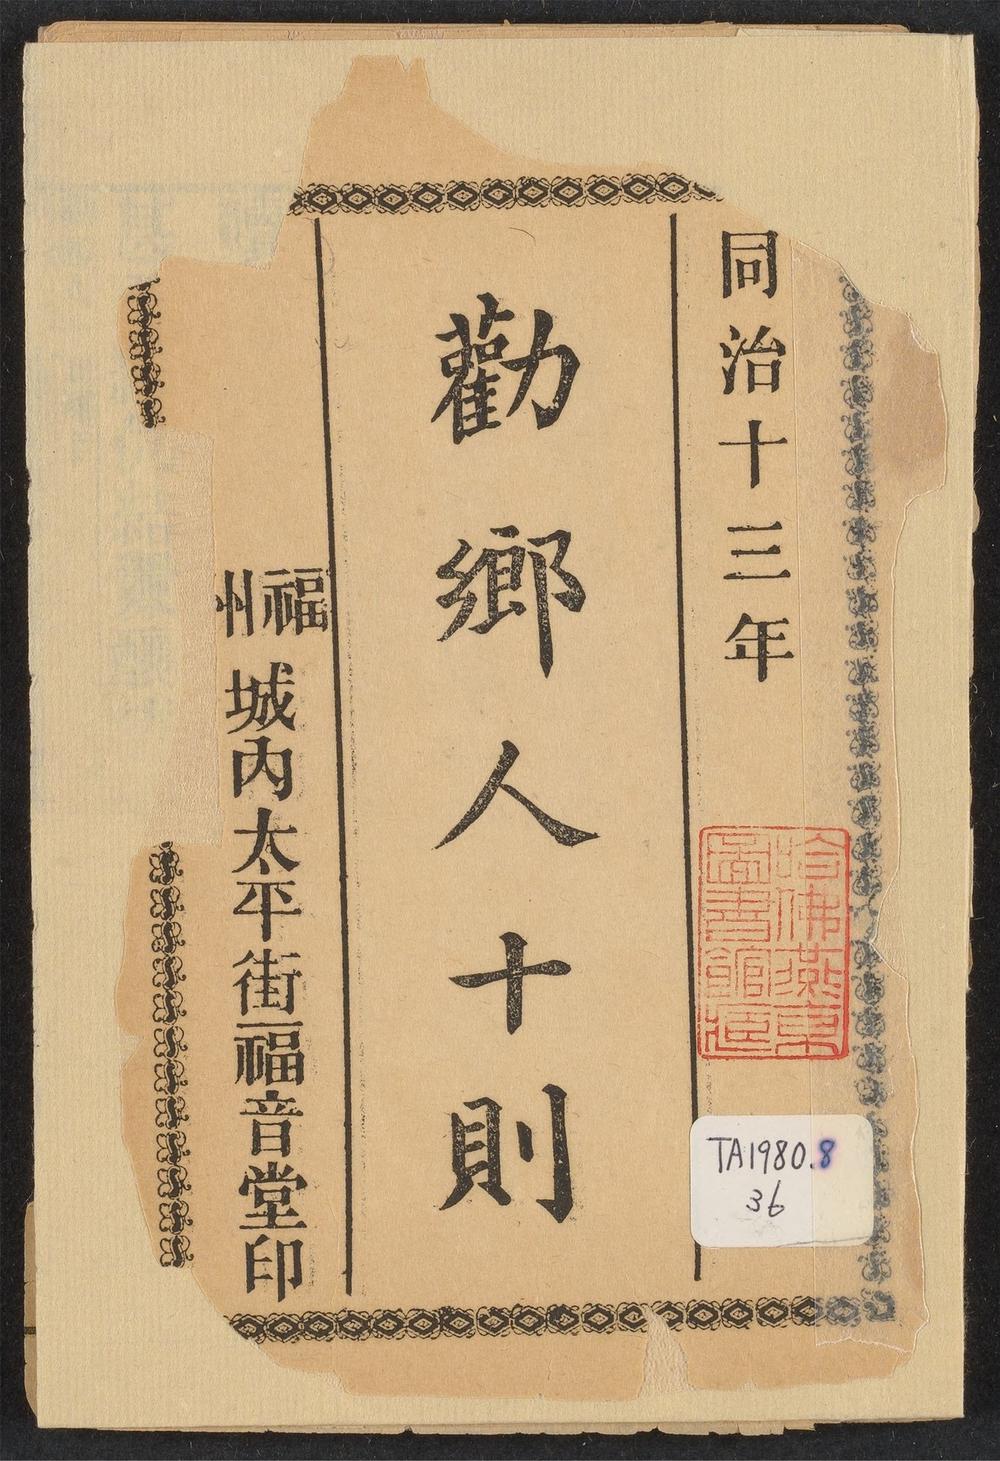 同治十三年
勸鄉人十則
福州城內太平街福音堂印
哈佛燕京
圖書館藏
TA1980.8
36